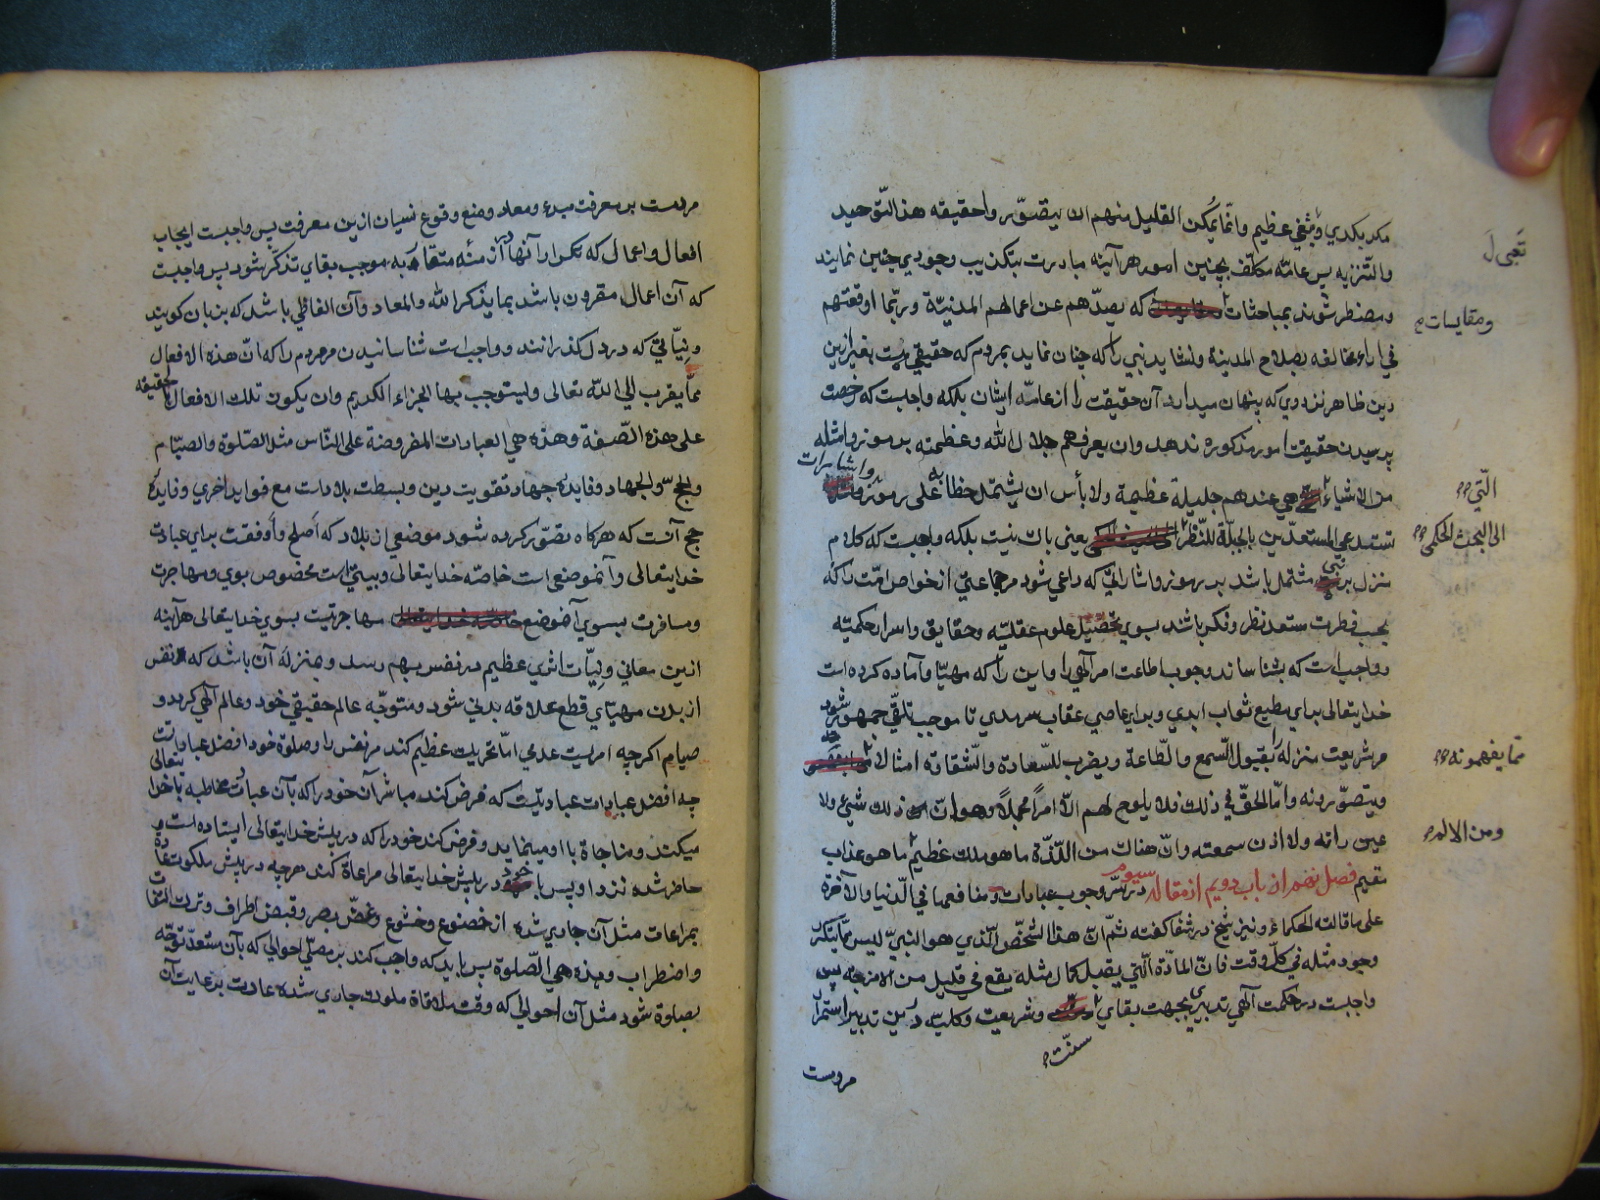 مکر بکدي وتنفی عظیم وانما یمکن القلیل منهم ان یتصوّر واحقیقه هذا التوحید
والتنزیه پس عامّه مکلف بچنین امور هرآینه مبادرت بتکذیب وجودي چنین نمایند
ومضطر شوند بمباحثات که یصدّهم عن اعمالهم المدنیّة وربّما اوقعتهم
ومقایسات
في اراء مخالفه بصلاح المدینة ونشاید نبی را که چنان نماید بمردم که حقیقی هست بغیر ازین
دین ظاهر نزد وي که پنهان میدارد آن حقیقت را از عامّه ایشان بلکه واجبست که رخصت
پرسیدن حقیقت امور مذکوره ندهد وان یعرفهم جلال الله وعظمته برموز وامثله
من الاشیاء هي عندهم جلیلة عظیمة ولا بأس ان یشتمل خطابه علی رموز واشارات
الّتي
تستدعي المستعدّین بالجبلّة للنّظر یعنی باك نیست بلکه واجبست که کلام
الی البحث الحکمي
منزل بر نبی مشتمل باشد بر رموز واشاراتي که داعی شود مر جماعتي از خواص امّت را که
بحسب فطرت مستعد نظر وفکر باشد بسوي تحصیل علوم عقلیّه وحقایق واسرار حکمیّه
وواجب است که بشناساند وجوب اطاعت امر الٰهي را واین را که مهیّا وآماده کرده است
خدایتعالی براي مطیع ثواب ابدي وبراي عاصي عقاب سرمدي تا موجب تلقّي جمهور شود
مر شریعت منزله را بقبول السّمع والطّاعة ویضرب للسّعادة والشّقاوة امثالا
ممّا یفهمونه
ویتصوّرونه وامّا الحقّ في ذلك فلا یلوح لهم الّا امراً مجملاً وهو ان ذلك شيء ولا
عین راته ولا اذن سمعته وانّ هناك من اللذّة ما هو ملك عظیم ما هو عذاب
ومن الالم
مقیم فصل نهم از باب دویم از مقاله سیوم در سرّ وجوب عبادات ومنافعها في الدّنیا والآخرة
علی ما قالته الحکماء ونیز شیخ در شفا کفته ثمّ انّ هذا الشخّص الّذي هو النبيّ لیس ممّا یتکرّر
وجود مثله في کلّ وقت فانّ المادّة الّتي یقبل کمال مثله یقع في قلیل من الامزجة پس
واجبست در حکمت الٰهي تدبیري بجهت بقاي وشریعت وکلیّه در این تدبیر استمرار
سنّت
مردمست
مردمست بر معرفت مبدء ومعاد ومنع وقوع نسیان ازین معرفت پس واجبست ایجاب
افعال واعمال که تکرار آنها در أزمنه متقاربه موجب بقاي تذکّر شود پس واجبست
که آن اعمال مقرون باشد بما یذکر الله والمعاد وآن الفاظي باشد که بزبان کویند
ونیّاتي که در دل کذرانند وواجب است شناسانیدن مر مردم را که انّ هذه الافعال
ممّا یقرب الي اللّه تعالی ولیستوجب بها الجزاء الکریم وان یکون تلك الافعال حقیقه
علی هذه الصّفة وهذه هي العبادات المفروضة علی النّاس مثل الصّلوة والصیّام
والحجّ والجهاد وفایده جهاد تقویت دین وبسطت بلادات مع فواید اخري وفایده
حج آنست که هرکاه تصوّر کرده شود موضعي از بلاد که أصلح وأوفقست براي عبادت
خدایتعالی وآنموضعي است خاصّه خدایتعالی وبیتي است مخصوص بوي ومهاجرت
ومسافرت بسوي آنموضع مهاجرتیست بسوي خدایتعالی هرآینه
ازین معاني ونیّات اثري عظیم در نفس بهم رسد وبمنزله آن باشد که نفس
از بدن مهیّاي قطع علاقه بدني شود ومتوجّه عالم حقیقي خود وعالم الٰهي کردد و
صیام اکرچه امریست عدمي امّا تحریك عظیم کند مر نفس را وصلوة خود افضل عباداتست
چه افضل عبادات عبادتیست که فرض کند مباشر آن خود را که بآن عبادت مخاطبه با خدا تعالی
میکند ومناجاة با او مینماید وفرض کند خود را که در پیش خدایتعالی ایستاده است و
حاضر شده نزد او پس با خود در پیش خدایتعالی مراعاة کند هرچه در پیش ملکوت عادة
بمراعات مثل آن جاري شده از خضوع وخشوع وغضّ بصر وقبض اطراف وترك التفات
واضطراب وهذه هي الصّلوة پس باید که واجب کند بر مصلّي احوالي که بآن مستعدّ توجّه
بصلوة شود مثل آن احوالي که وقت ملاقاة ملوك جاري شده عادت برعایت آن